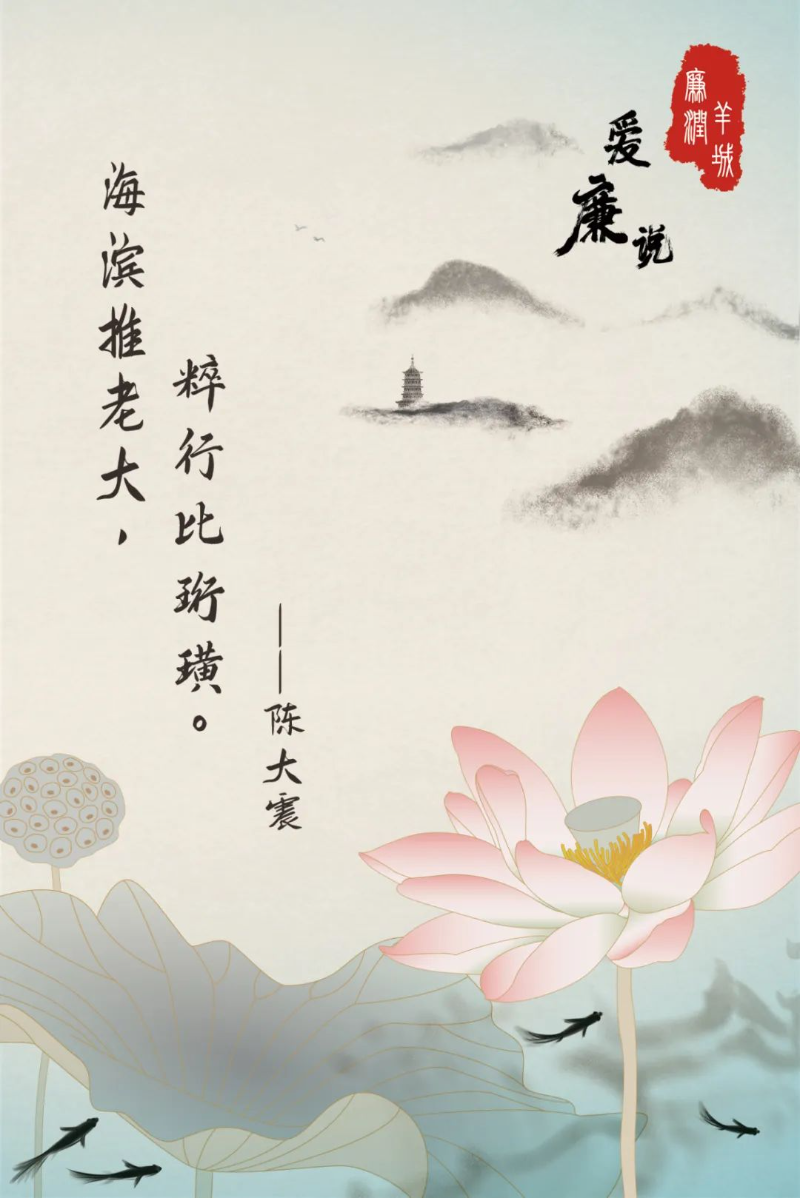 廉润
羊城
爱廉说
海滨推老大，
粹行比珩璜。
——陈大震